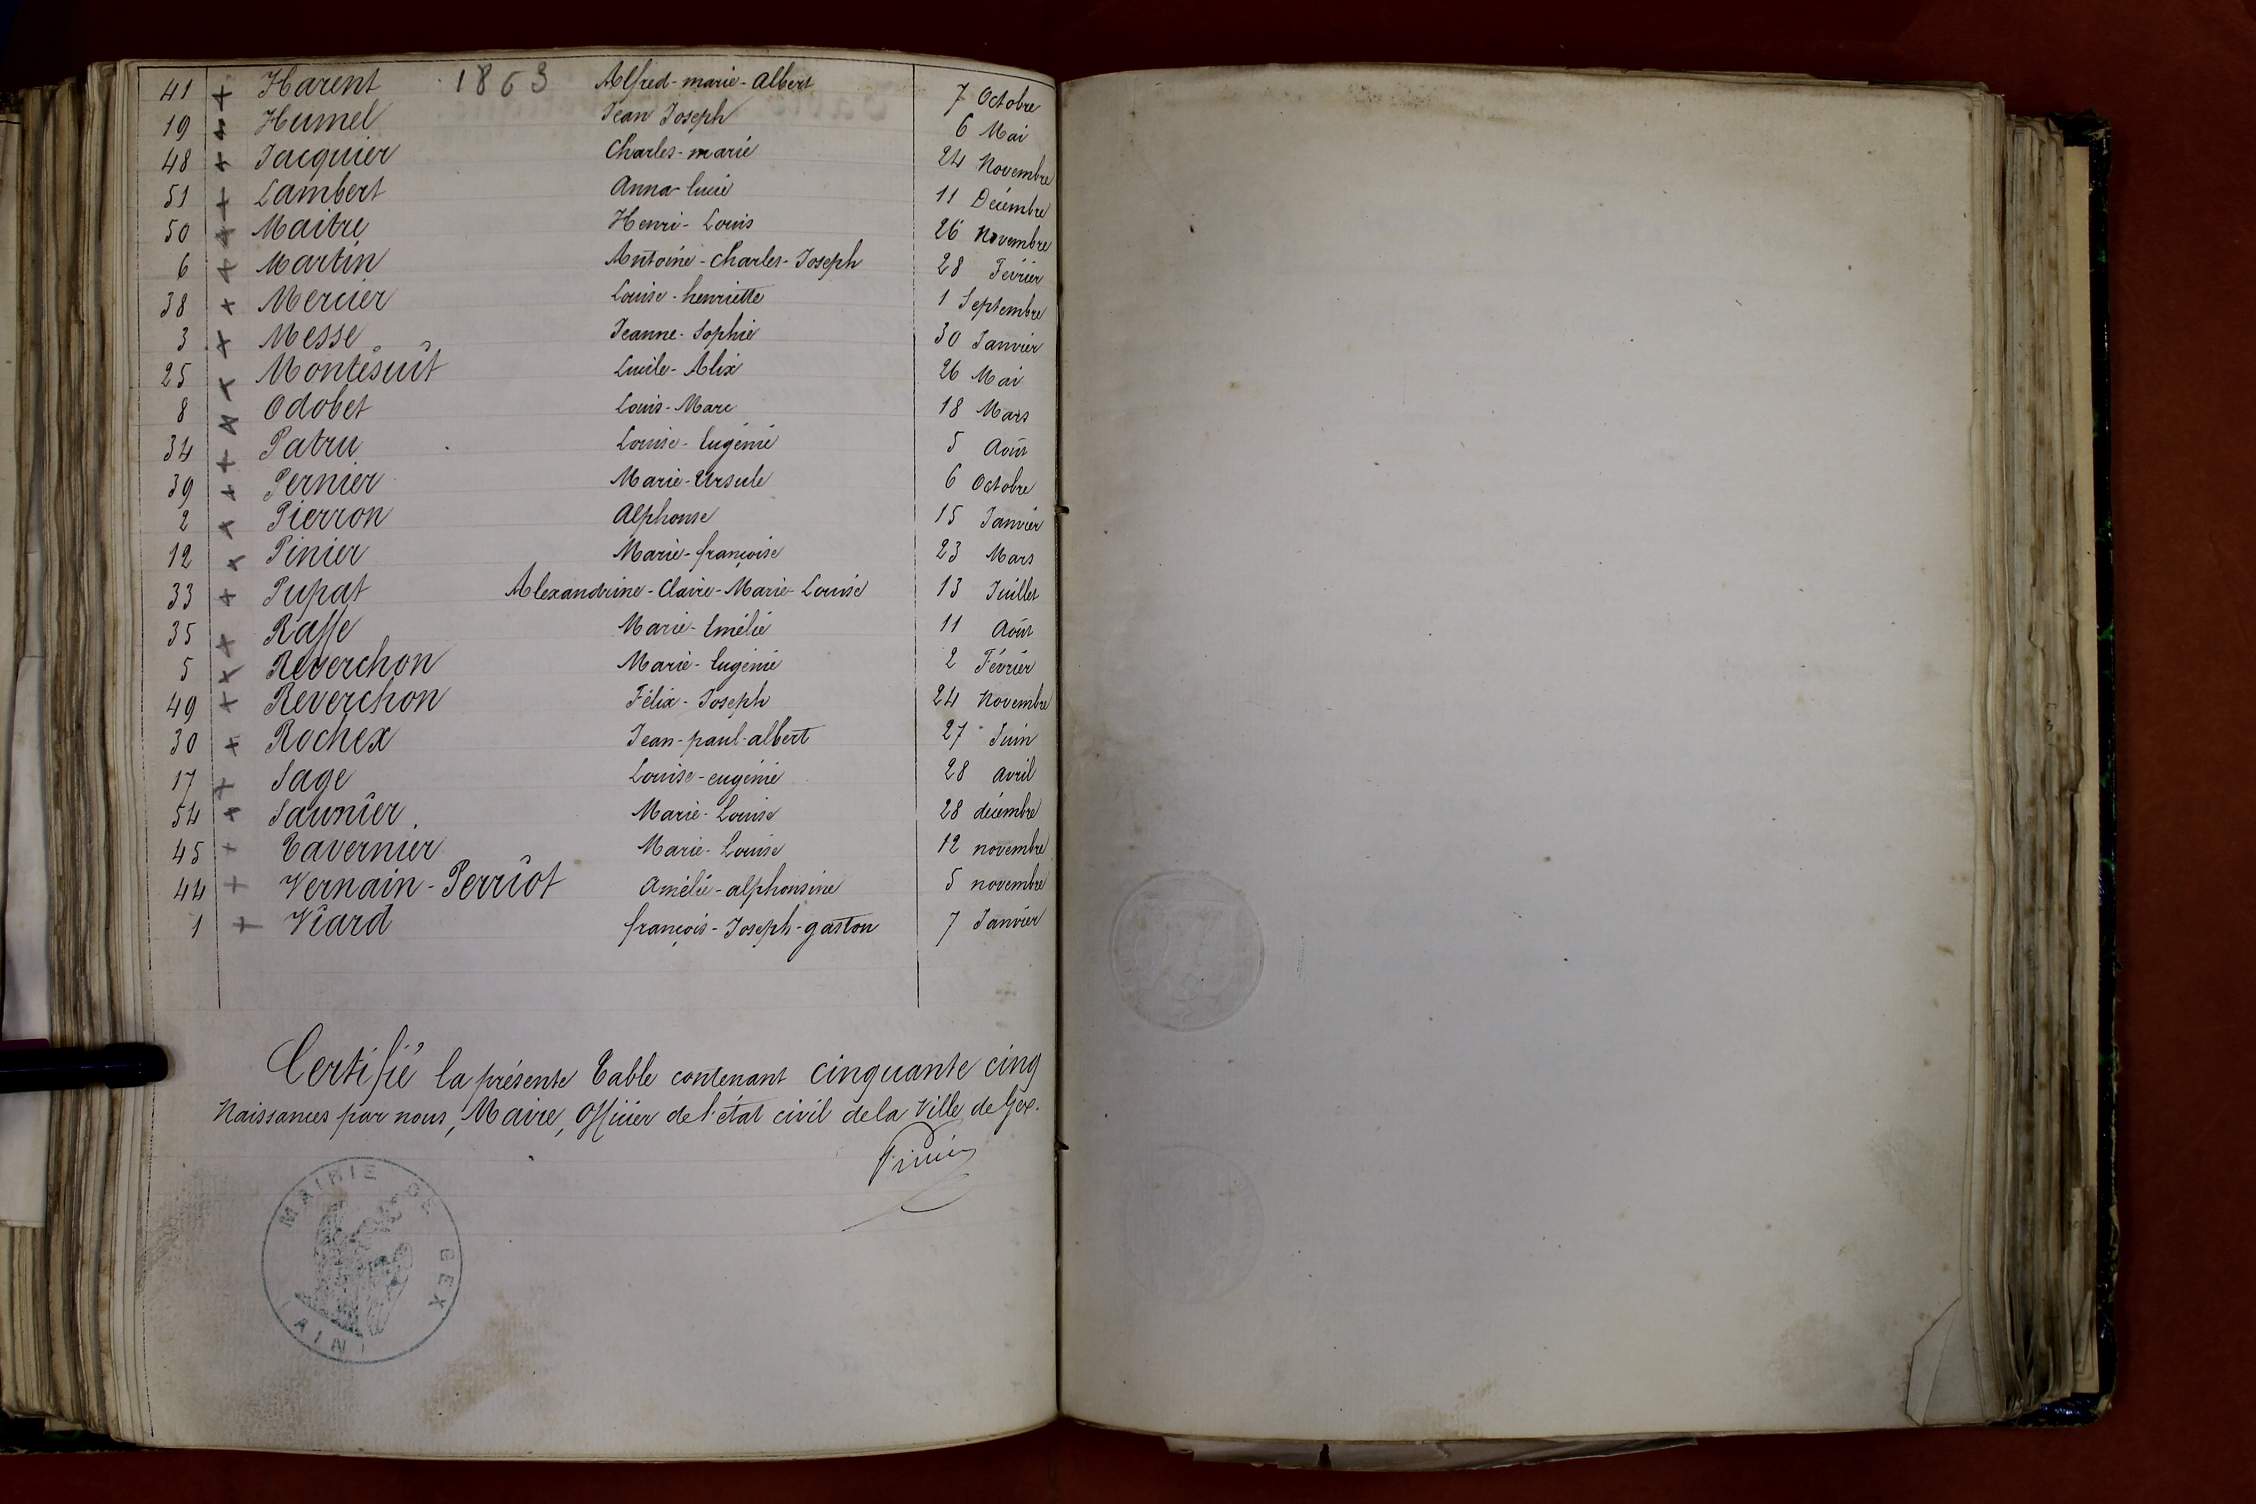 41 + Harent 1863 Alfred-marie-albert 7 Octobre
19 + Humel Jean Joseph 6 Mai
48 + Jacquier Charles-marie 24 Novembre
51 + Lambert Anna-lucie 11 Décembre
50 + Maitre Henri-Louis 26 Novembre
6 + Martin Antoine-Charles-Joseph 28 Février
38 + Mercier Louise-henriette 1 Septembre
3 + Messe Jeanne-Sophie 30 Janvier
25 + Montésuit Lucile-Alix 26 Mai
8 + Odobet Louis-Marc 18 Mars
34 + Patru Louise-Eugénie 5 Août
39 + Pernier Marie-Ursule 6 Octobre
2 + Pierron Alphonse 15 Janvier
12 + Pinier Marie-françoise 23 Mars
33 + Pupat Alexandrine-Claire-Marie-Louise 13 Juillet
35 + Raffe Marie-Emélie 11 Août
5 + Reverchon Marie-Eugénie 2 Février
49 + Reverchon Félix-Joseph 24 Novembre
30 + Rochex Jean-paul-albert 27 Juin
17 + Sage Louise-eugénie 28 avril
54 + Saunier Marie-Louise 28 décembre
45 + Tavernier Marie-Louise 12 novembre
44 + Vernain-Perriot Amélie-alphonsine 5 novembre
1 + Viard françois-Joseph-gaston 7 Janvier
Certifié la présente Table contenant cinquante cinq
Naissances par nous, Maire, Officier de l'état civil de la Ville de Gex.
MAIRIE DE GEX
(AIN)